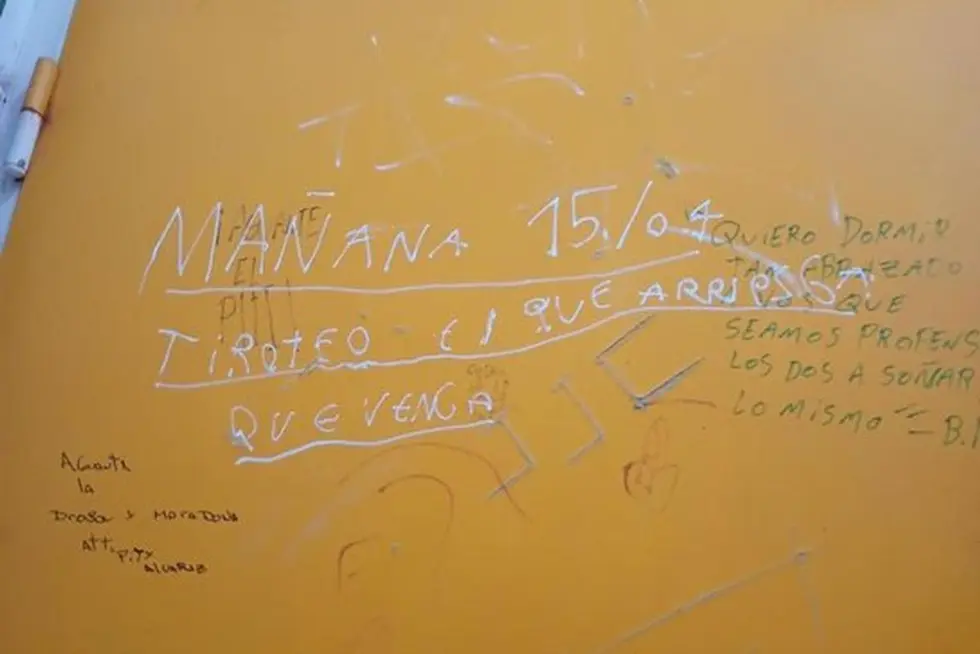 MAÑANA 15/04
TIROTEO El QUE ARRIESGA
QUE VENGA
QUIERO DORMIR
TAN ABRAZADO
A VOS QUE
SEAMOS PROPENS
LOS DOS A SOÑAR
LO MISMO
Aguante
la
Droga y Maradona
Att:
Pity
Alvarez